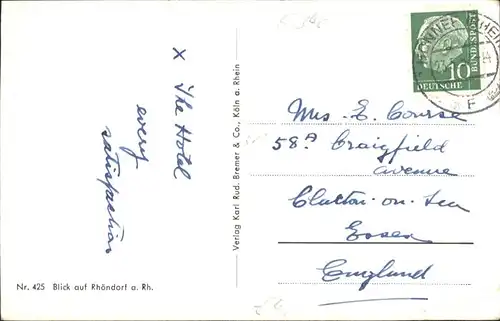 x The Hotel
every
satisfaction
Nr. 425 Blick auf Rhöndorf a. Rh.
Verlag Karl Rud. Bremer & Co., Köln a. Rhein
10
DEUTSCHE
BUNDESPOST
Mrs. E. Course
58A Craigfield
avenue
Clacton-on-Sea
Essex
England